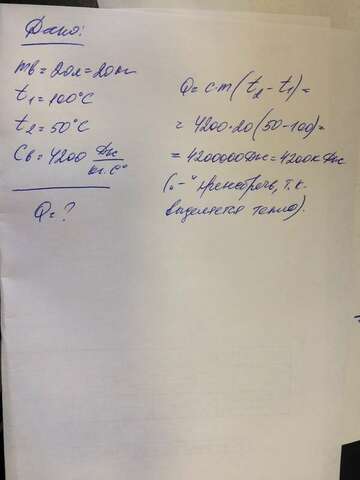 Дано:
mв = 20л = 20кг
t₁ = 100°C
t₂ = 50°C
Cв = 4200 Дж/кг·C°
Q - ?
Q = c·m (t₂ - t₁) =
= 4200·20 (50-100) =
= 4200000 Дж = 4200 кДж
("-" пренебречь, т.к.
выделяется тепло).